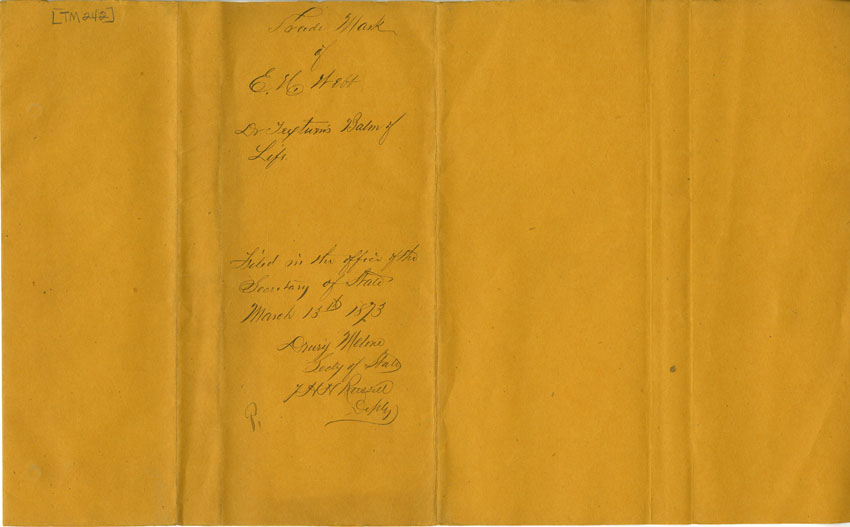 [TM242]
Trade Mark
of
E. H.
Dr Balm of
Life
Filed in the office of the
Secretary of State
March 13th 1873
Drury Melone
Secty of State
Russell
Depty
P.